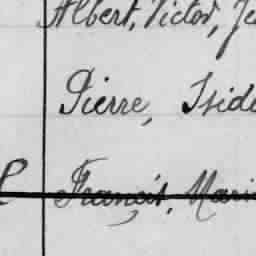 Albert, Victor, Je
Pierre, Isid
Francis, Mari